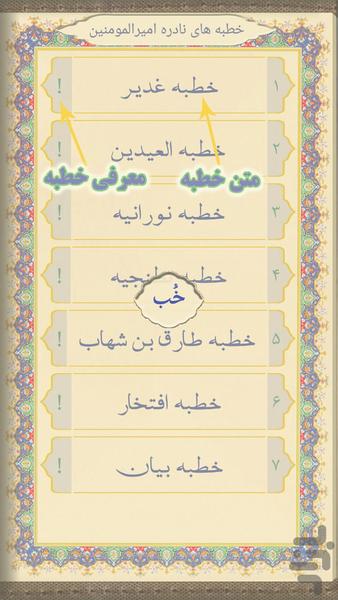 خطبه های نادره امیرالمومنین
۱ خطبه غدیر !
۲ خطبه العیدین !
معرفی خطبه متن خطبه
۳ خطبه نورانیه !
۴ خطبه !
خُب
۵ خطبه طارق بن شهاب !
۶ خطبه افتخار !
۷ خطبه بیان !
بازار